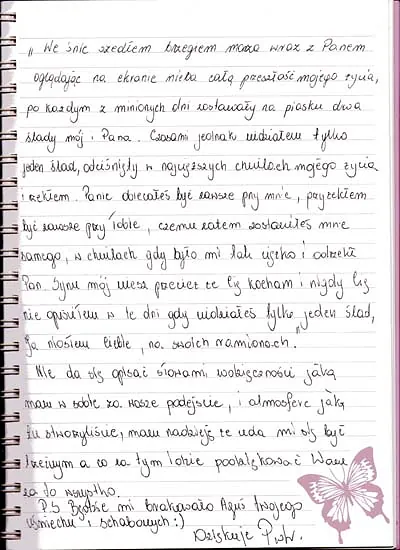 „We śnie szedłem brzegiem morza wraz z Panem
oglądając na ekranie nieba całą przeszłość mojego życia,
po każdym z minionych dni zostawały na piasku dwa
ślady mój i Pana. Czasami jednak widziałem tylko
jeden ślad, odciśnięty w najcięższych chwilach mojego życia
i rzekłem. Panie obiecałeś być zawsze przy mnie, przyrzekłem
być zawsze przy Tobie, czemu zatem zostawiłeś mnie
samego, w chwilach gdy było mi tak ciężko i odrzekł
Pan. Synu mój wiesz przecież że Cię kocham i nigdy Cię
nie opuściłem w te dni gdy widziałeś tylko jeden ślad,
Ja niosłem Ciebie, na swoich ramionach."
Nie da się opisać słowami wdzięczności jaką
mam w sobie za wasze podejście, i atmosferę jaką
tu stworzyliście, mam nadzieję że uda mi się być
trzeźwym a co za tym idzie podziękować Wam
za to wszystko.
P.S Będzie mi brakowało Aguś twojego
uśmiechu i schabowych :)
Dziękuje